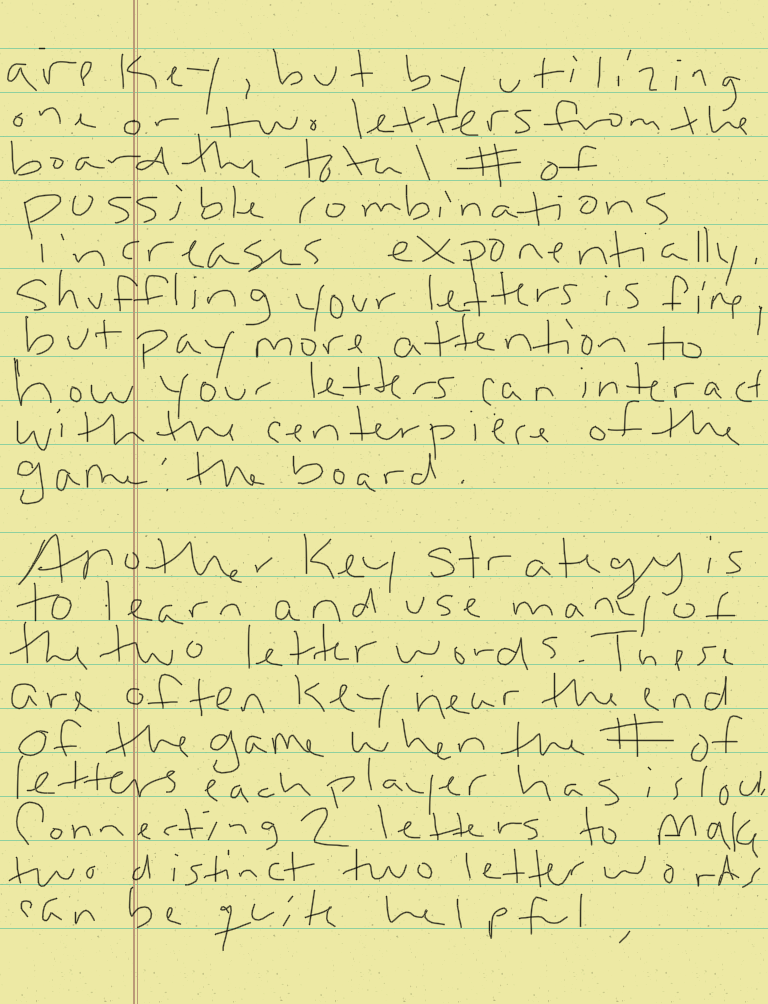 are key, but by utilizing
one or two letters from the
board the total # of
possible combinations
increases exponentially.
Shuffling your letters is fine,
but pay more attention to
how your letters can interact
with the centerpiece of the
game: the board.
Another key strategy is
to learn and use many of
the two letter words. These
are often key near the end
of the game when the # of
letters each player has is low.
Connecting 2 letters to make
two distinct two letter words
can be quite helpful,